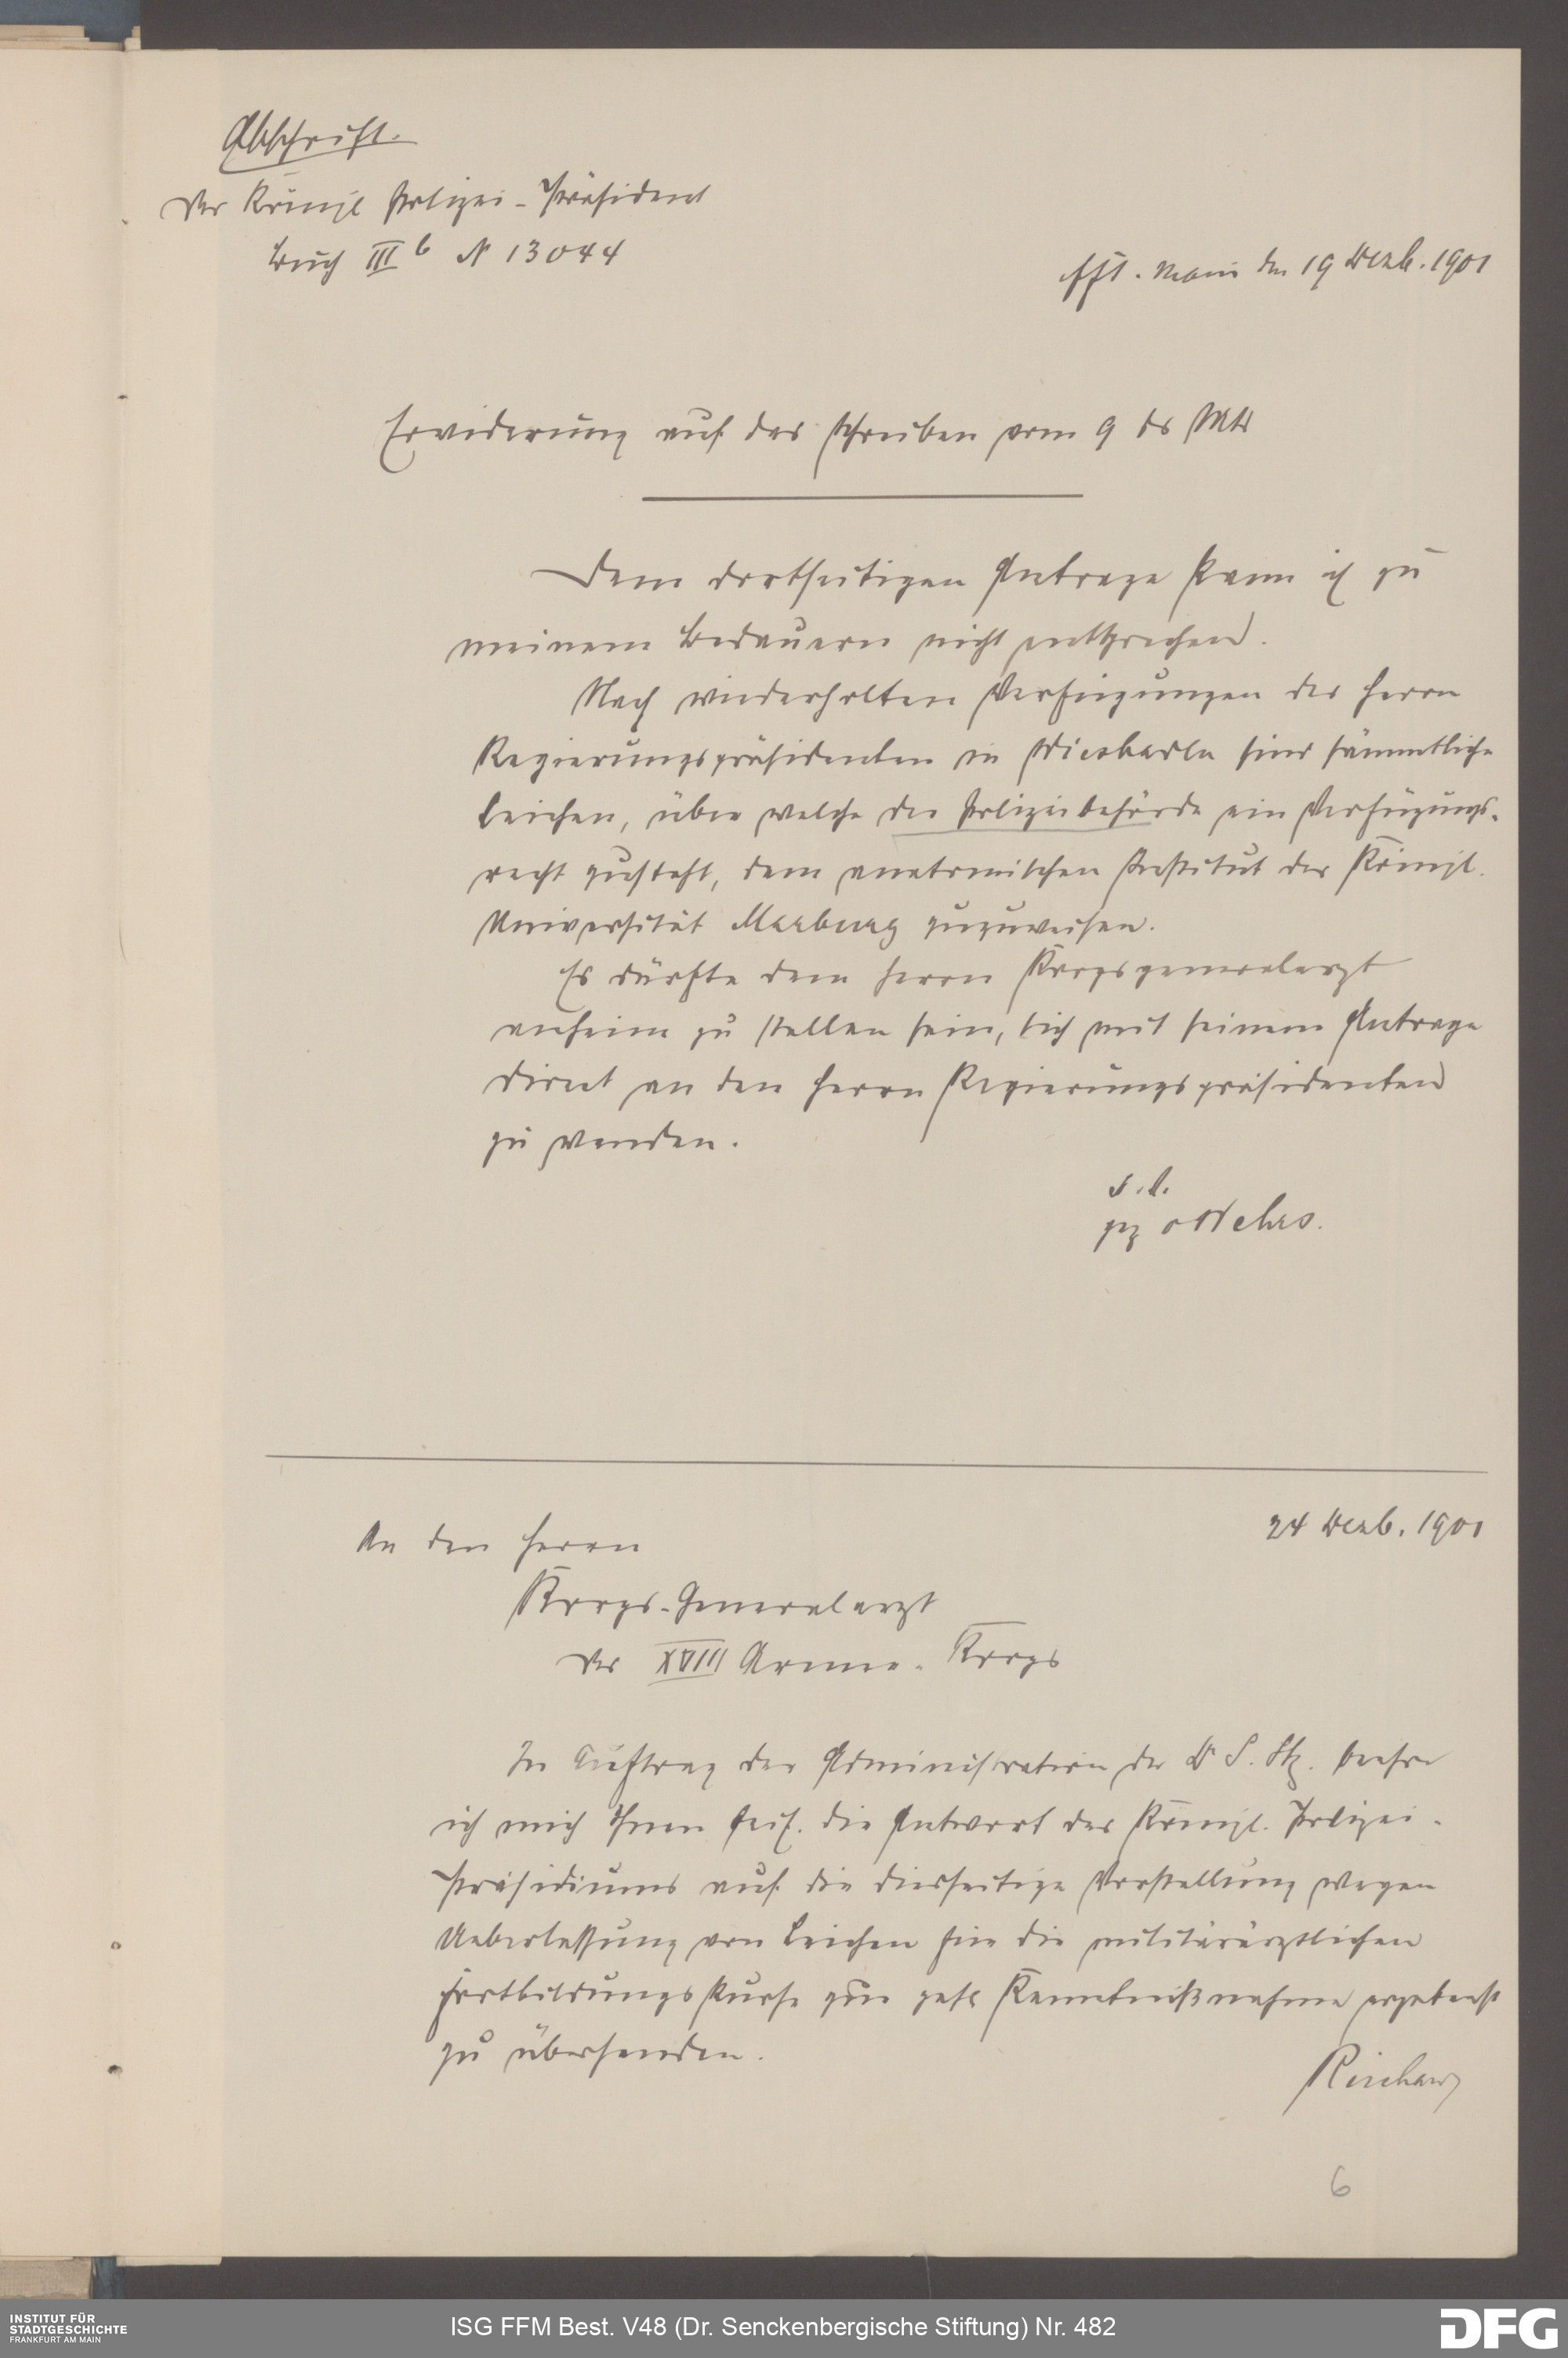 Abschrift.
Der Königl Polizei-Präsident
Buch III b N 13044
Fft. Main den 19 Dezb. 1901
Erwiderung auf das Schreiben vom 9 ds Mts
Dem dortseitigen Antrage kann ich zu
meinem Bedauern nicht entsprechen.
Nach wiederholten Verfügungen des Herrn
Regierungspräsidenten in Wiesbaden sind sämmtliche
Leichen, über welche der Polizeibehörde ein Verfügungs-
recht zusteht, dem anatomischen Institut der Königl.
Universität Marburg zuzuweisen.
Es dürfte dem Herrn Korpsgeneralarzt
anheim zu stellen sein, sich mit seinem Antrage
direct an den Herrn Regierungspräsidenten
zu wenden.
gez
24 Dezb. 1901
An den Herrn
Korps-Generalarzt
des XVIII Armee-Korps
Im Auftrag der Administration der Dr S. Stg. beehre
ich mich Ihnen die Antwort des Königl. Polizei-
Präsidiums auf die diesseitige Vorstellung wegen
Ueberlassung von Leichen für die militärärztlichen
Fortbildungskurse zur gefl Kenntnißnahme ergebenst
zu übersenden.
6
INSTITUT FÜR
STADTGESCHICHTE
FRANKFURT AM MAIN
ISG FFM Best. V48 (Dr. Senckenbergische Stiftung) Nr. 482
DFG